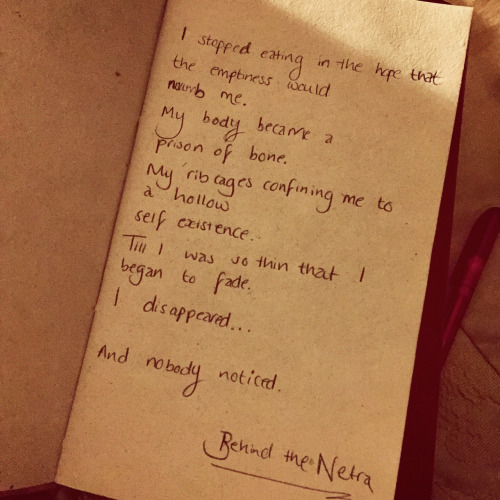 I stopped eating in the hope that
the emptiness would
numb me.
My body became a
prison of bone.
My rib cages confining me to
a hollow
self existence.
Till I was so thin that I
began to fade.
I disappeared...
And nobody noticed.
Behind the Netra